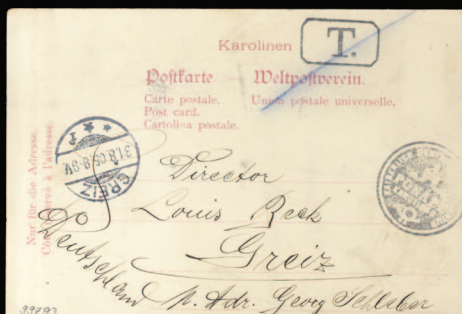 Karolinen
T.
Postkarte Weltpostverein.
Carte postale. Union postale universelle.
Post card.
Cartolina postale.
Nur für die Adresse.
Côté réservé à l'adresse.
GREIZ
31.8.05.8-9V
Director
Louis Reck
Greiz
Deutschland p. Adr. Georg Schleber
99793